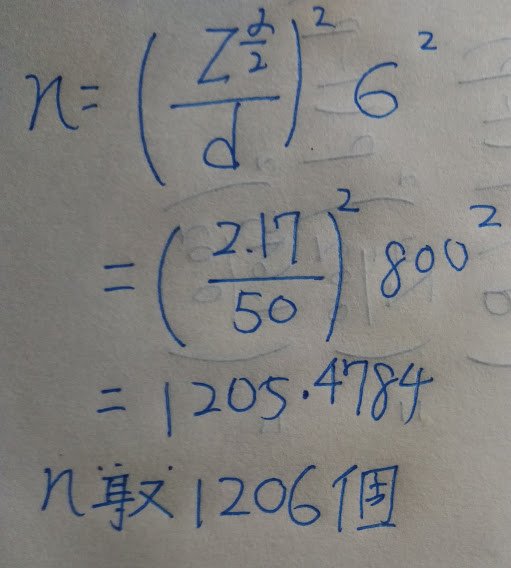 n = (Z^{α/2} / d)^2 σ^2
= (2.17 / 50)^2 800^2
= 1205.4784
n 取 1206 個